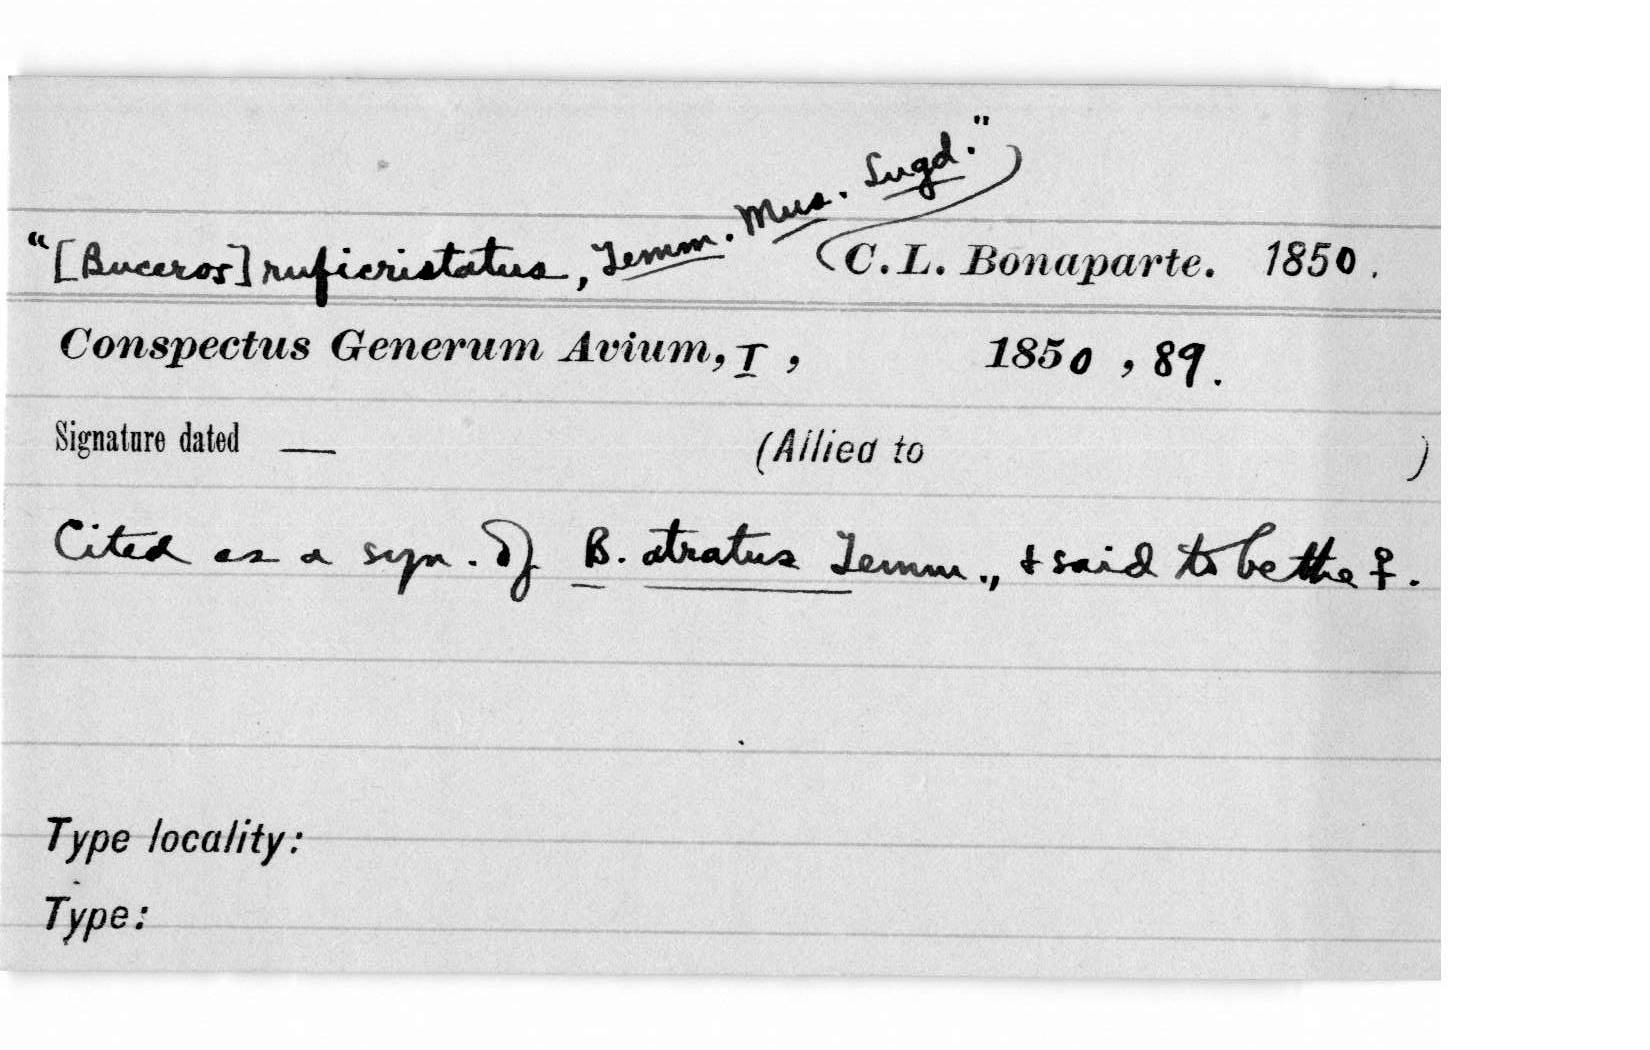 "[Buceros] ruficristatus, Temm. Mus. Lugd." (C. L. Bonaparte. 1850.
Conspectus Generum Avium, I, 1850, 89.
Signature dated — (Allied to )
Cited as a syn. of B. atratus Temm., & said to be the ♀.
Type locality:
Type: